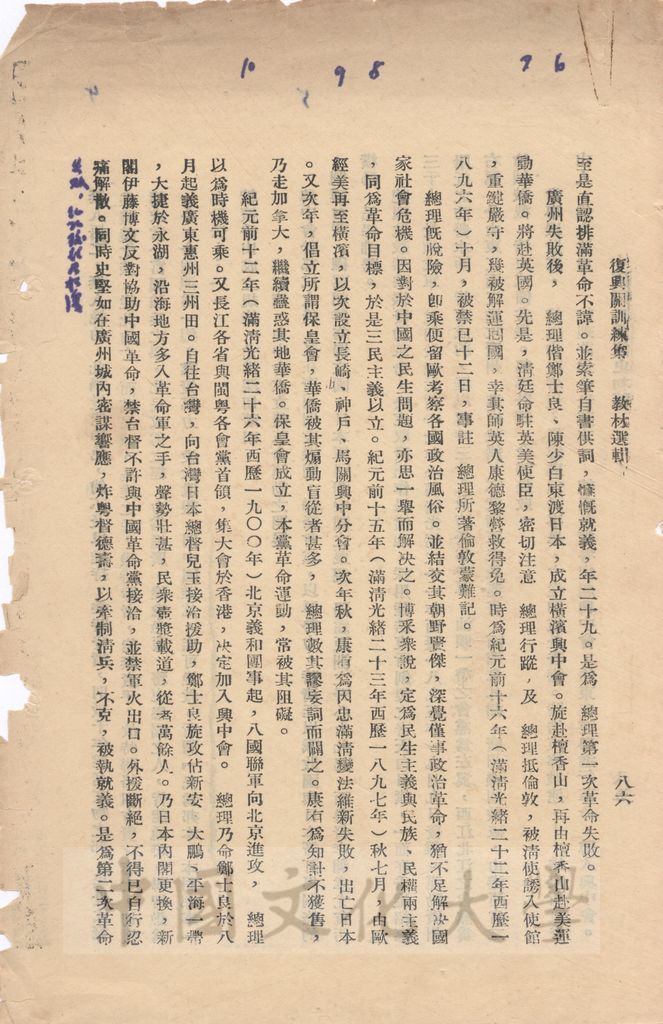 復興關訓練集　教材選輯　八六
至是直認排滿革命不諱。並索筆自書供詞，慷慨就義，年二十九。是爲　總理第一次革命失敗。
廣州失敗後，　總理偕鄭士良、陳少白東渡日本，成立橫濱興中會。旋赴檀香山，再由檀香山赴美運
動華僑。將赴英國。先是，清廷命駐英美使臣，密切注意　總理行蹤，及　總理抵倫敦，被清使誘入使館
，重鍵嚴守，幾被解運回國，幸其師英人康德黎營救得免。時爲紀元前十六年（滿清光緒二十二年西歷一
八九六年）十月，被禁已十二日，事註　總理所著倫敦蒙難記。
總理旣脫險，卽乘便留歐考察各國政治風俗。並結交其朝野賢傑，深覺僅事政治革命，猶不足解決國
家社會危機。因對於中國之民生問題，亦思一舉而解決之。博采衆說，定爲民生主義與民族、民權兩主義
，同爲革命目標，於是三民主義以立。紀元前十五年（滿清光緒二十三年西歷一八九七年）秋七月，由歐
經美再至橫濱，以次設立長崎、神戶、馬關興中分會。次年秋，康有爲因忠滿清變法維新失敗，出亡日本
。又次年，倡立所謂保皇會，華僑被其煽動盲從者甚多，　總理數其謬妄詞而闢之。康有爲知計不獲售，
乃走加拿大，繼續蠱惑其地華僑。保皇會成立，本黨革命運動，常被其阻礙。
紀元前十二年（滿清光緒二十六年西歷一九〇〇年）北京義和團事起，八國聯軍向北京進攻，　總理
以爲時機可乘。又長江各省與閩粵各會黨首領，集大會於香港，決定加入興中會。　總理乃命鄭士良於八
月起義廣東惠州三州田。自往台灣，向台灣日本總督兒玉接洽援助，鄭士良旋攻佔新安、大鵬、平海一帶
，大捷於永湖，沿海地方多入革命軍之手，聲勢壯甚，民衆壺漿載道，從者萬餘人。乃日本內閣更換，新
閣伊藤博文反對協助中國革命，禁台督不許與中國革命黨接洽，並禁軍火出口。外援斷絕，不得已自行忍
痛解散。同時史堅如在廣州城內密謀響應，炸粵督德壽，以牽制清兵，不克，被執就義。是爲第二次革命
6
7
8
9
10
中國文化大學